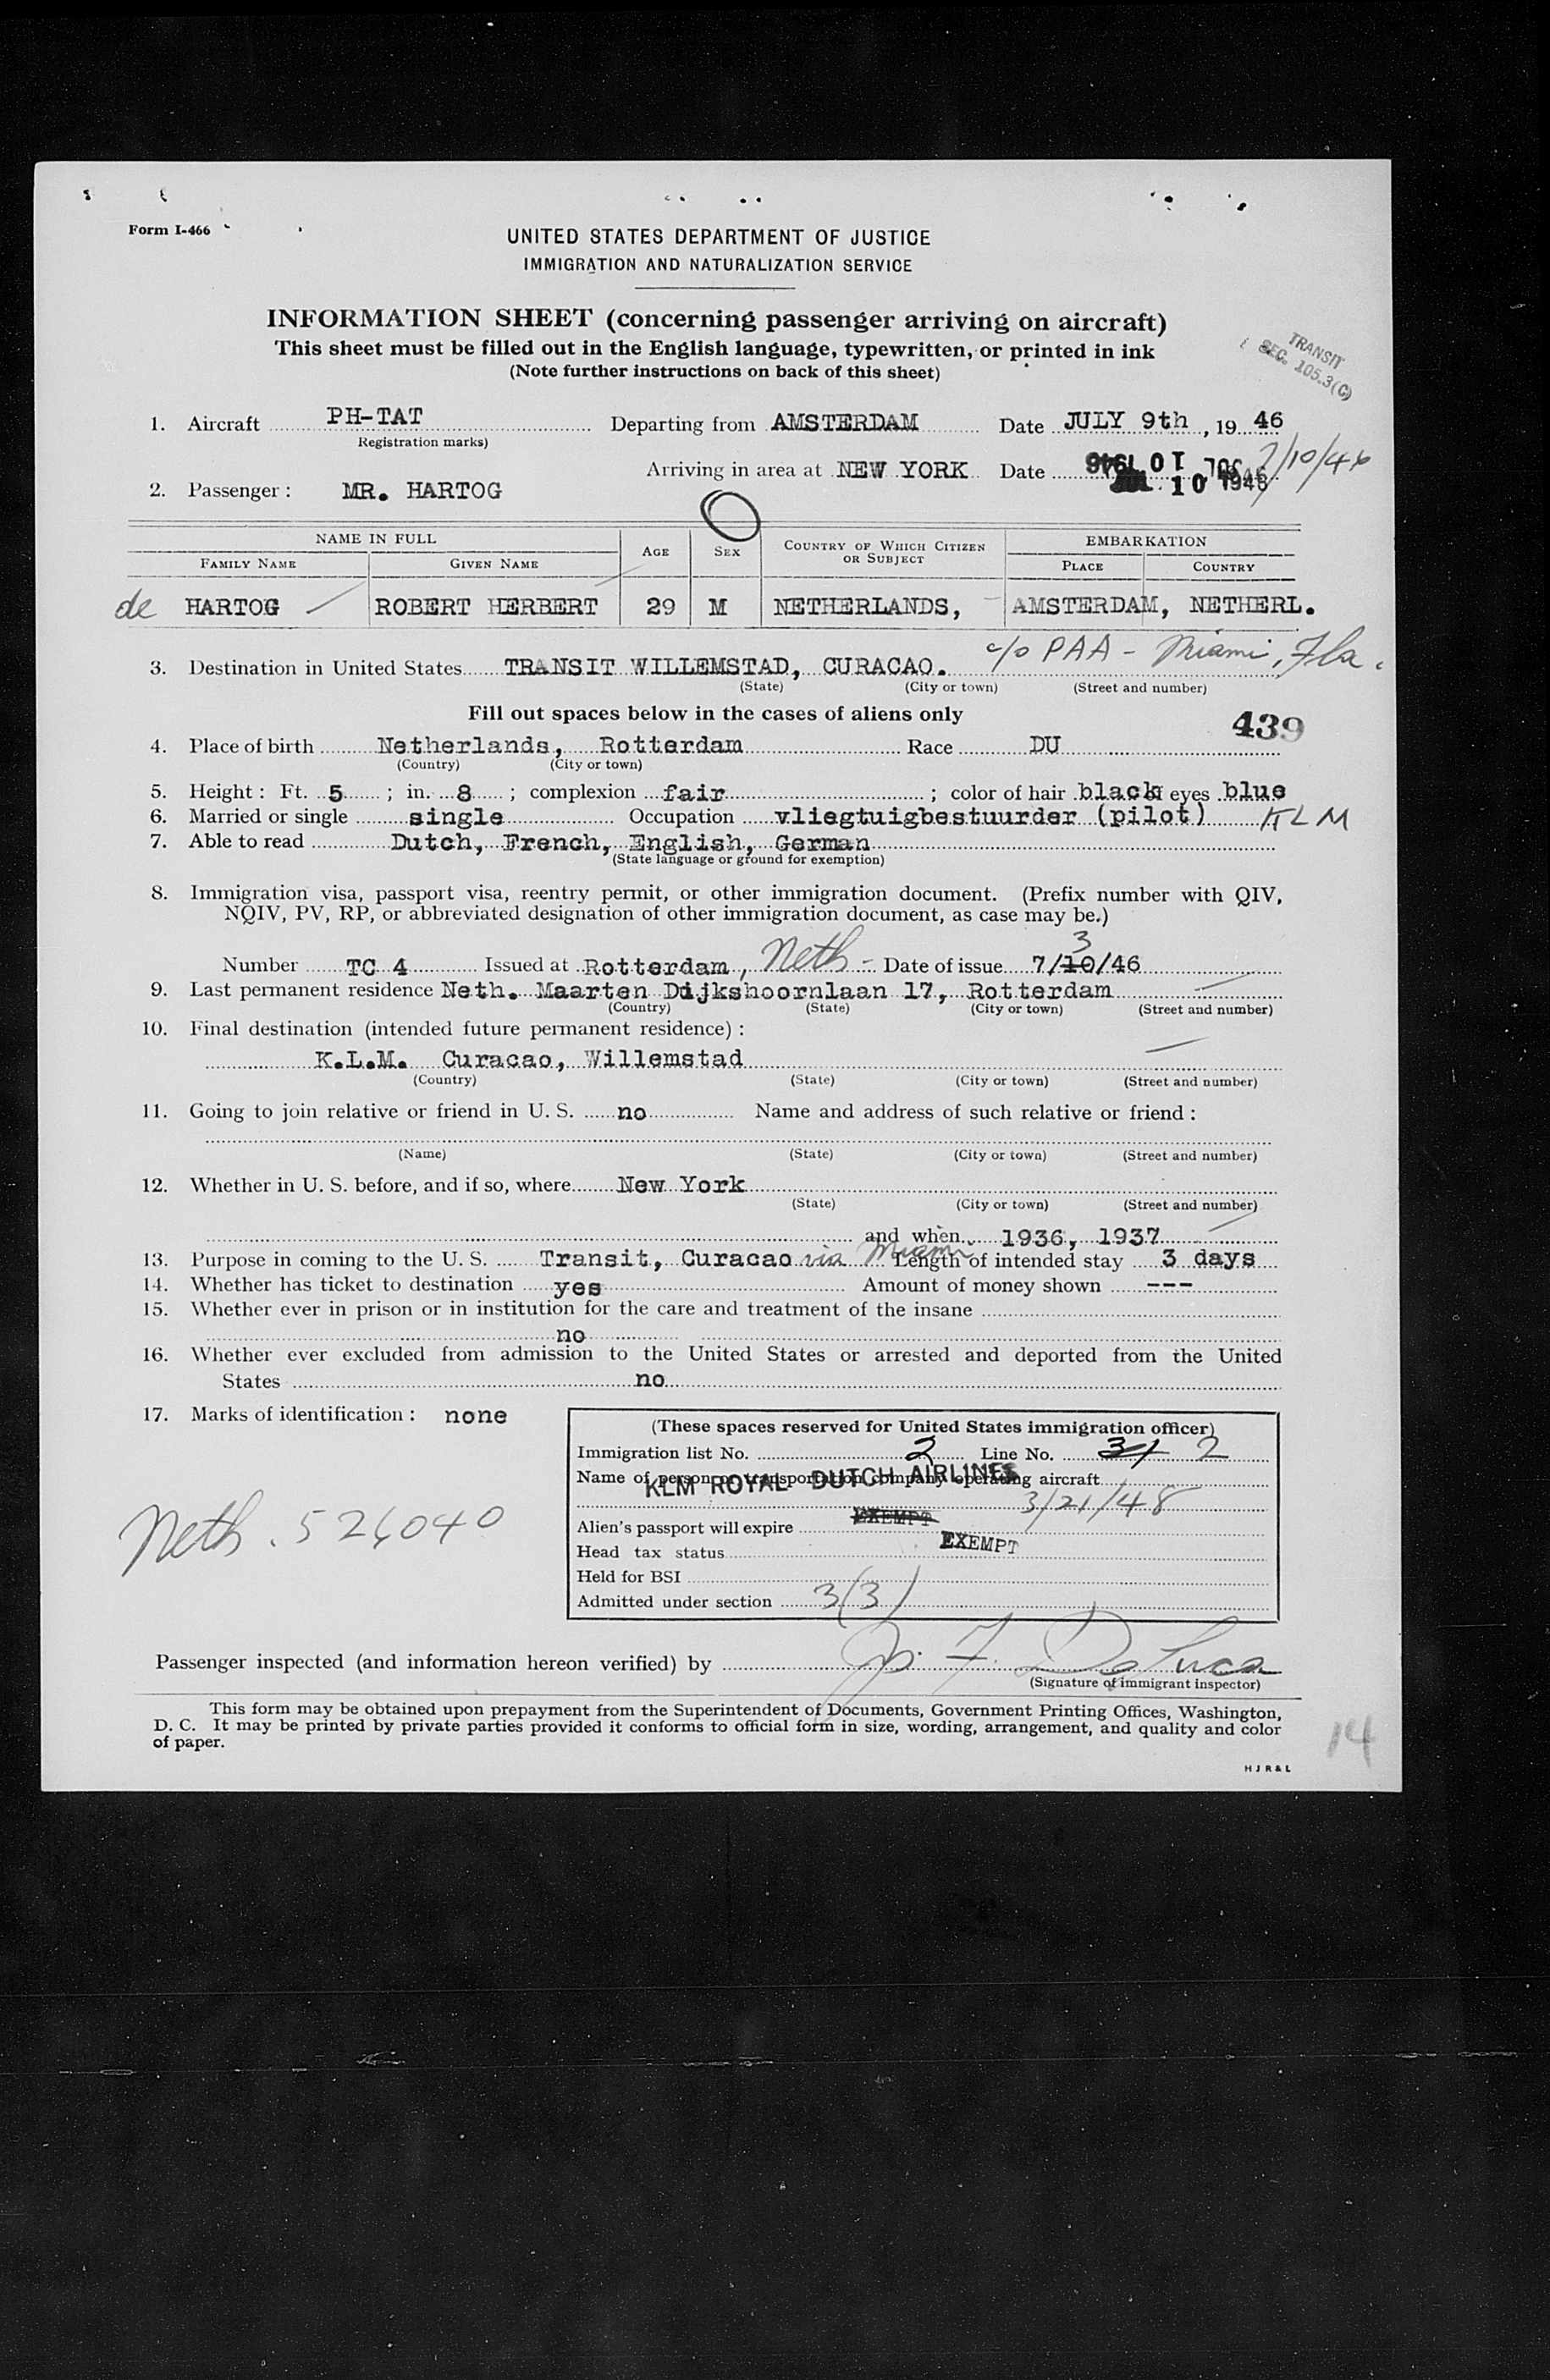 Form I-466
UNITED STATES DEPARTMENT OF JUSTICE
IMMIGRATION AND NATURALIZATION SERVICE
INFORMATION SHEET (concerning passenger arriving on aircraft)
This sheet must be filled out in the English language, typewritten, or printed in ink
(Note further instructions on back of this sheet)
TRANSIT
SEC. 105.3(C)
1. Aircraft PH-TAT Departing from AMSTERDAM Date JULY 9th, 19 46
Registration marks)
Arriving in area at NEW YORK Date JUL 10 1946 7/10/46
JUL 10 1946
2. Passenger: MR. HARTOG
NAME IN FULL AGE SEX COUNTRY OF WHICH CITIZEN OR SUBJECT EMBARKATION
FAMILY NAME GIVEN NAME PLACE COUNTRY
de HARTOG ROBERT HERBERT 29 M NETHERLANDS, AMSTERDAM, NETHERL.
c/o PAA - Miami, Fla.
3. Destination in United States TRANSIT WILLEMSTAD, CURACAO.
(State) (City or town) (Street and number)
Fill out spaces below in the cases of aliens only
439
4. Place of birth Netherlands, Rotterdam Race DU
(Country) (City or town)
5. Height: Ft. 5; in. 8; complexion fair; color of hair black eyes blue
6. Married or single single Occupation vliegtuigbestuurder (pilot) KLM
7. Able to read Dutch, French, English, German
(State language or ground for exemption)
8. Immigration visa, passport visa, reentry permit, or other immigration document. (Prefix number with QIV,
NQIV, PV, RP, or abbreviated designation of other immigration document, as case may be.)
3
Number TC 4 Issued at Rotterdam, Neth - Date of issue 7/10/46
9. Last permanent residence Neth. Maarten Dijkshoornlaan 17, Rotterdam
(Country) (State) (City or town) (Street and number)
10. Final destination (intended future permanent residence):
K.L.M. Curacao, Willemstad
(Country) (State) (City or town) (Street and number)
11. Going to join relative or friend in U. S. no Name and address of such relative or friend:
(Name) (State) (City or town) (Street and number)
12. Whether in U. S. before, and if so, where New York
(State) (City or town) (Street and number)
and when 1936, 1937
13. Purpose in coming to the U. S. Transit, Curacao via Miami Length of intended stay 3 days
14. Whether has ticket to destination yes Amount of money shown ---
15. Whether ever in prison or in institution for the care and treatment of the insane
no
16. Whether ever excluded from admission to the United States or arrested and deported from the United
States no
17. Marks of identification: none
(These spaces reserved for United States immigration officer)
Immigration list No. 2 Line No. 31 2
Name of person or transportation company operating aircraft
KLM ROYAL DUTCH AIRLINES
3/21/48
Alien's passport will expire EXEMPT
Head tax status EXEMPT
Held for BSI
Admitted under section 3(3)
Neth. 526040
Passenger inspected (and information hereon verified) by
(Signature of immigrant inspector)
This form may be obtained upon prepayment from the Superintendent of Documents, Government Printing Offices, Washington,
D. C. It may be printed by private parties provided it conforms to official form in size, wording, arrangement, and quality and color
of paper.
14
H J R & L